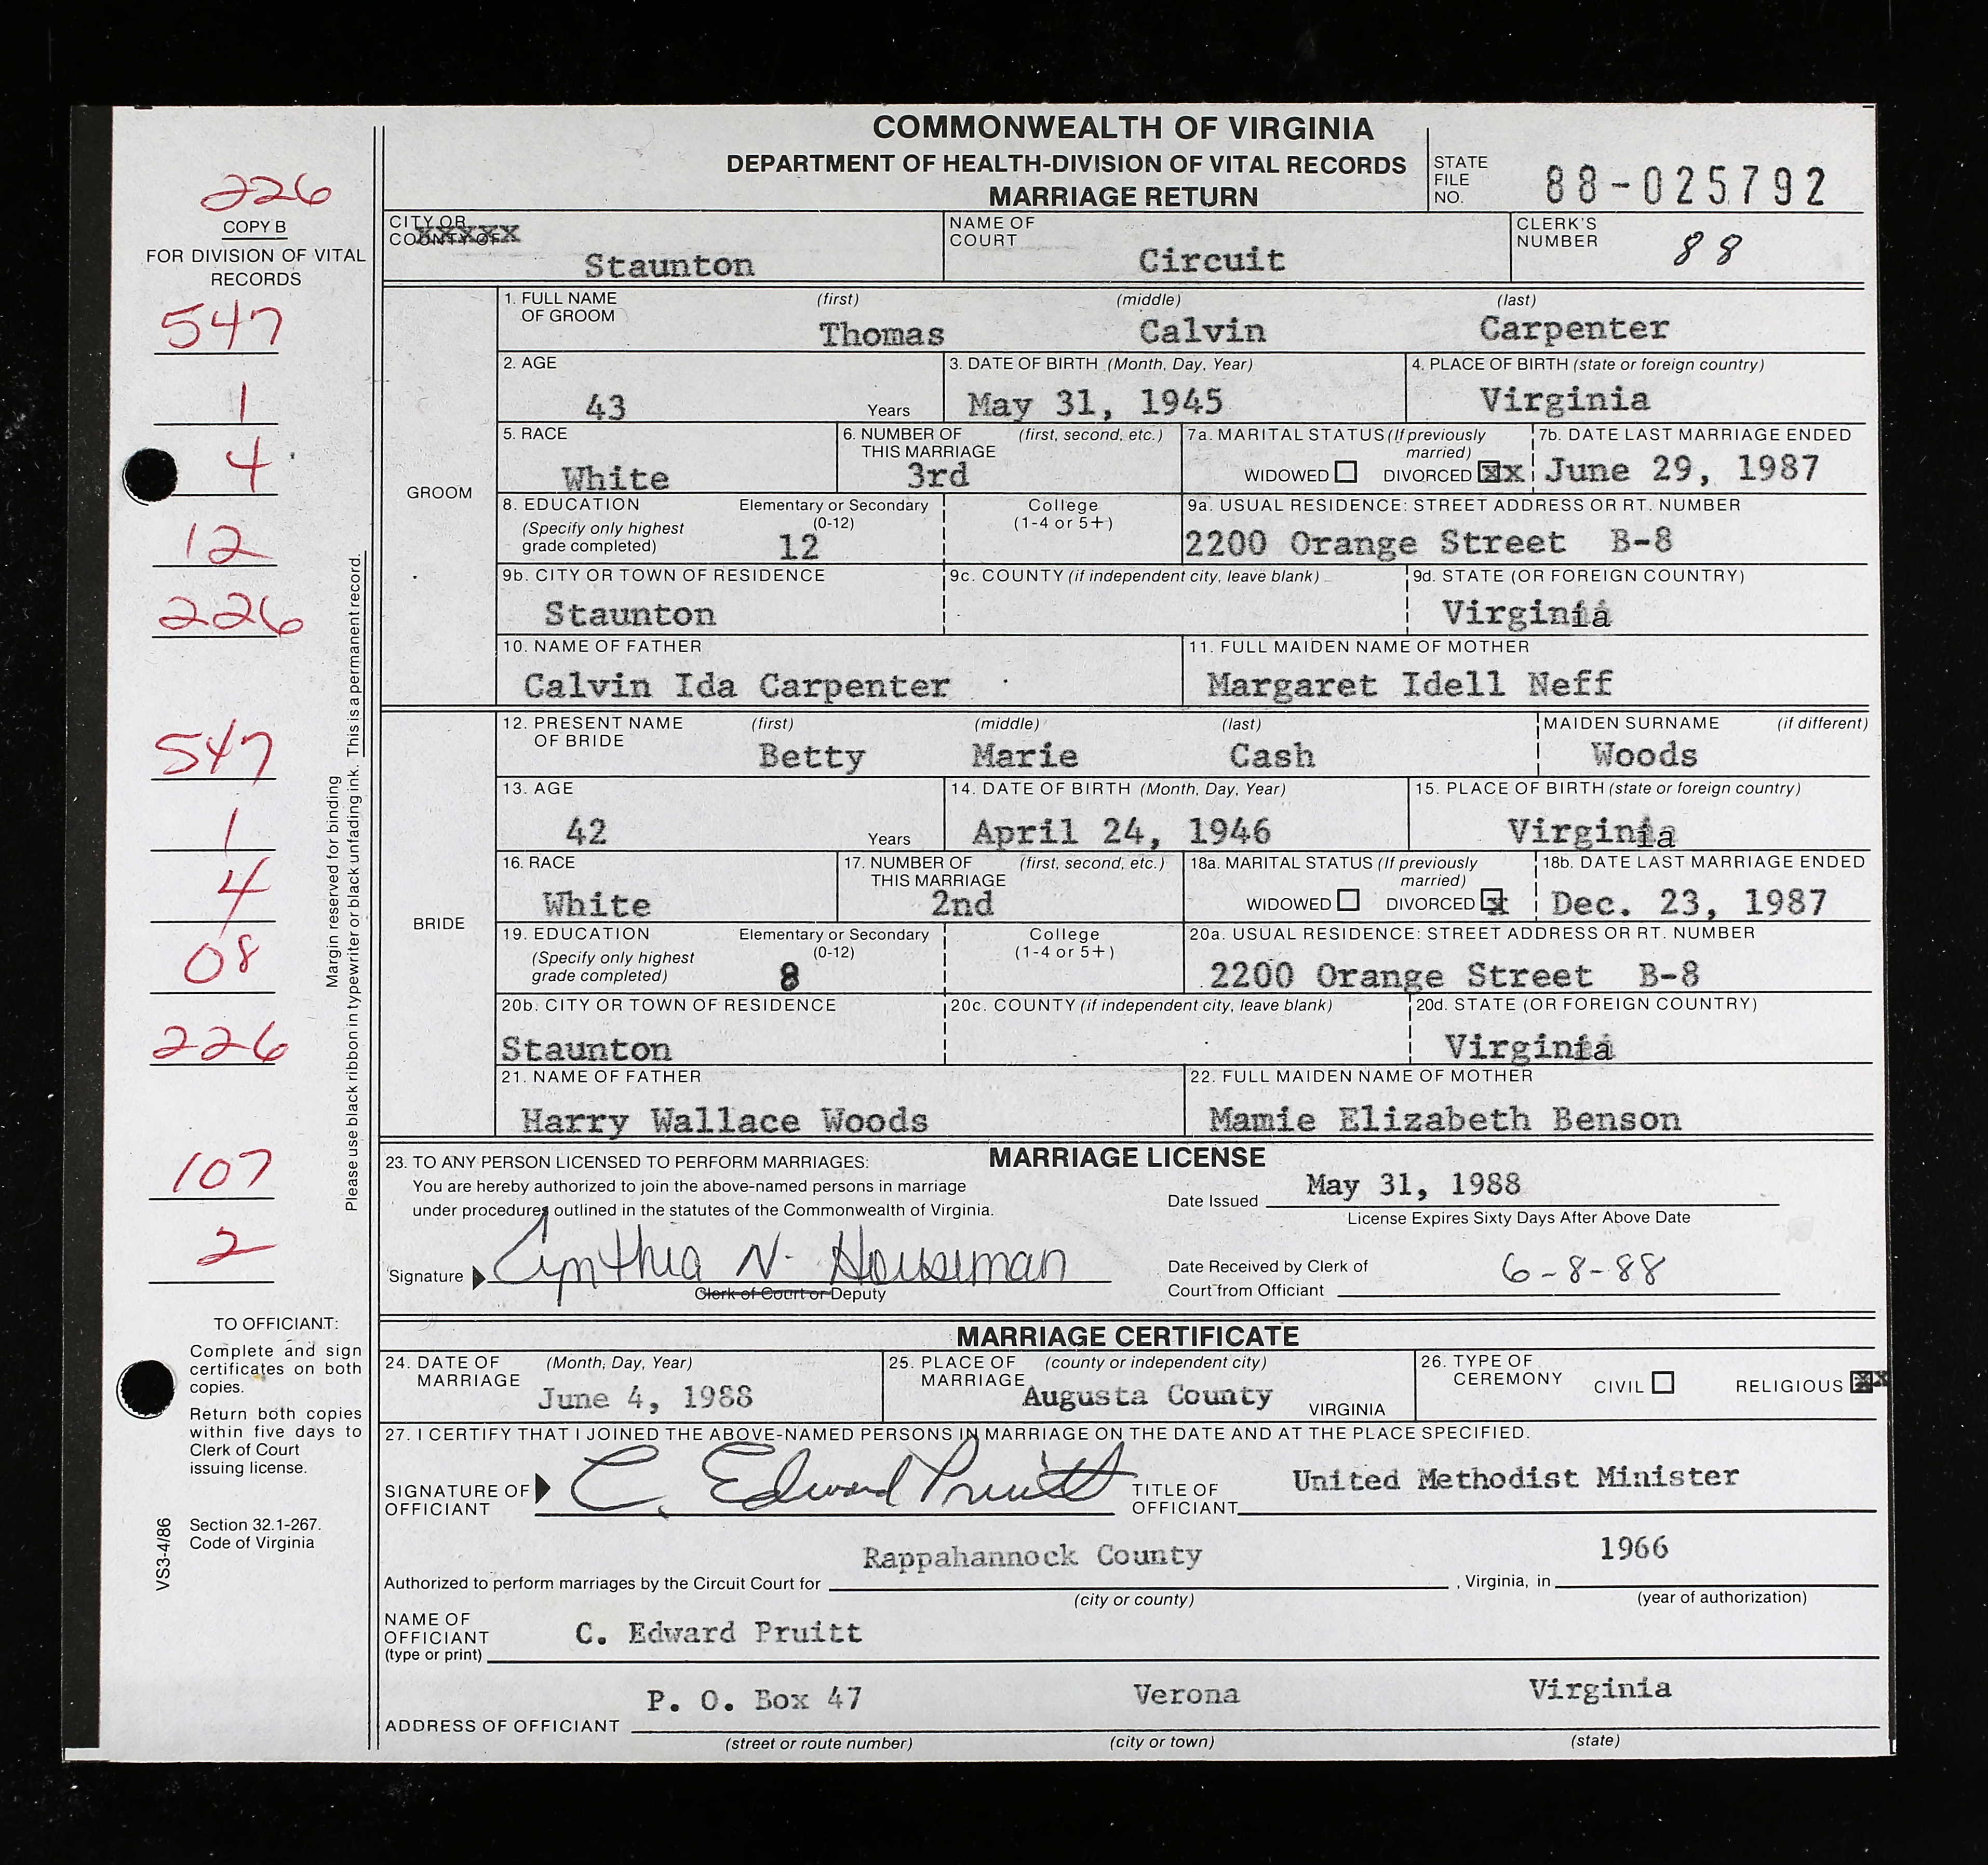 COMMONWEALTH OF VIRGINIA
DEPARTMENT OF HEALTH-DIVISION OF VITAL RECORDS
MARRIAGE RETURN
STATE FILE NO. 88-025792
226
COPY B
FOR DIVISION OF VITAL RECORDS
547
1
4
12
226
547
1
4
08
226
107
2
Margin reserved for binding
Please use black ribbon in typewriter or black unfading ink. This is a permanent record.
TO OFFICIANT:
Complete and sign
certificates on both
copies.
Return both copies
within five days to
Clerk of Court
issuing license.
Section 32.1-267.
Code of Virginia
VS3-4/86
CITY OR
COUNTY OF xxxxx
Staunton
NAME OF COURT
Circuit
CLERK'S NUMBER
88
GROOM
1. FULL NAME OF GROOM (first) (middle) (last)
Thomas Calvin Carpenter
2. AGE
43 Years
3. DATE OF BIRTH (Month, Day, Year)
May 31, 1945
4. PLACE OF BIRTH (state or foreign country)
Virginia
5. RACE
White
6. NUMBER OF THIS MARRIAGE (first, second, etc.)
3rd
7a. MARITAL STATUS (If previously married)
WIDOWED DIVORCED xx
7b. DATE LAST MARRIAGE ENDED
June 29, 1987
8. EDUCATION (Specify only highest grade completed)
Elementary or Secondary (0-12)
12
College (1-4 or 5+)
9a. USUAL RESIDENCE: STREET ADDRESS OR RT. NUMBER
2200 Orange Street B-8
9b. CITY OR TOWN OF RESIDENCE
Staunton
9c. COUNTY (if independent city, leave blank)
9d. STATE (OR FOREIGN COUNTRY)
Virginia
10. NAME OF FATHER
Calvin Ida Carpenter
11. FULL MAIDEN NAME OF MOTHER
Margaret Idell Neff
BRIDE
12. PRESENT NAME OF BRIDE (first) (middle) (last)
Betty Marie Cash
MAIDEN SURNAME (if different)
Woods
13. AGE
42 Years
14. DATE OF BIRTH (Month, Day, Year)
April 24, 1946
15. PLACE OF BIRTH (state or foreign country)
Virginia
16. RACE
White
17. NUMBER OF THIS MARRIAGE (first, second, etc.)
2nd
18a. MARITAL STATUS (If previously married)
WIDOWED DIVORCED x
18b. DATE LAST MARRIAGE ENDED
Dec. 23, 1987
19. EDUCATION (Specify only highest grade completed)
Elementary or Secondary (0-12)
8
College (1-4 or 5+)
20a. USUAL RESIDENCE: STREET ADDRESS OR RT. NUMBER
2200 Orange Street B-8
20b. CITY OR TOWN OF RESIDENCE
Staunton
20c. COUNTY (if independent city, leave blank)
20d. STATE (OR FOREIGN COUNTRY)
Virginia
21. NAME OF FATHER
Harry Wallace Woods
22. FULL MAIDEN NAME OF MOTHER
Mamie Elizabeth Benson
MARRIAGE LICENSE
23. TO ANY PERSON LICENSED TO PERFORM MARRIAGES:
You are hereby authorized to join the above-named persons in marriage
under procedures outlined in the statutes of the Commonwealth of Virginia.
Date Issued May 31, 1988
License Expires Sixty Days After Above Date
Signature Cynthia N. Houseman
Clerk of Court or Deputy
Date Received by Clerk of
Court from Officiant 6-8-88
MARRIAGE CERTIFICATE
24. DATE OF MARRIAGE (Month, Day, Year)
June 4, 1988
25. PLACE OF MARRIAGE (county or independent city)
Augusta County VIRGINIA
26. TYPE OF CEREMONY CIVIL RELIGIOUS xx
27. I CERTIFY THAT I JOINED THE ABOVE-NAMED PERSONS IN MARRIAGE ON THE DATE AND AT THE PLACE SPECIFIED.
SIGNATURE OF OFFICIANT C. Edward Pruitt
TITLE OF OFFICIANT United Methodist Minister
Authorized to perform marriages by the Circuit Court for Rappahannock County, Virginia, in 1966
(city or county) (year of authorization)
NAME OF OFFICIANT (type or print) C. Edward Pruitt
ADDRESS OF OFFICIANT P. O. Box 47 Verona Virginia
(street or route number) (city or town) (state)